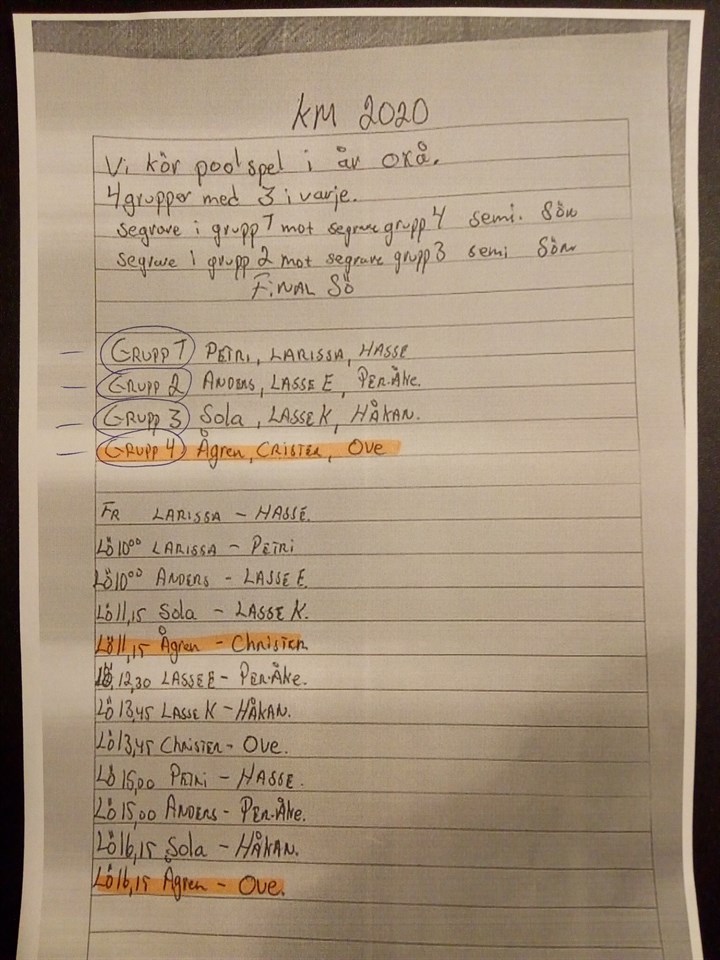 KM 2020
Vi kör poolspel i år oxå.
4 grupper med 3 i varje.
segrare i grupp 1 mot segrare grupp 4 semi. Sön
segrare i grupp 2 mot segrare grupp 3 semi Sön
FINAL SÖ
GRUPP 1 PETRI, LARISSA, HASSE
GRUPP 2 ANDERS, LASSE E, PER-ÅKE.
GRUPP 3 SOLA, LASSE K, HÅKAN.
GRUPP 4 Ågren, CRISTER, OVE
FR LARISSA - HASSE.
LÖ 10⁰⁰ LARISSA - PETRI
LÖ 10⁰⁰ ANDERS - LASSE E.
LÖ 11,15 SOLA - LASSE K.
LÖ 11,15 Ågren - CHRISTER
LÖ 12,30 LASSE E - PER-ÅKE.
LÖ 13,45 LASSE K - HÅKAN.
LÖ 13,45 CHRISTER - OVE.
LÖ 15,00 PETRI - HASSE.
LÖ 15,00 ANDERS - PER-ÅKE.
LÖ 16,15 SOLA - HÅKAN.
LÖ 16,15 Ågren - OVE.